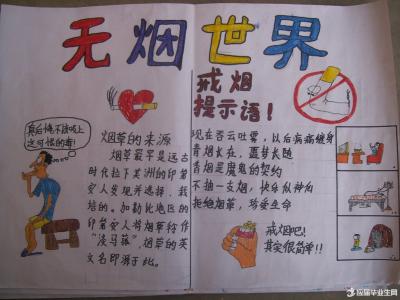 无烟世界
戒烟
提示语！
真后悔不该吸上
这可恨的毒！
烟草的来源
烟草最早是远古
时代拉丁美洲的印第
安人发现并选择、栽
培的。加勒比地区的
印第安人将烟草称作
“淡巴菰”，烟草的英
文名即源于此。
现在吞云吐雾，以后病痛缠身
香烟长在，噩梦长随
香烟是魔鬼的契约
不抽一支烟，快乐似神仙
拒绝烟草，珍爱生命
戒烟吧！
其实很简单！！
应届毕业生网